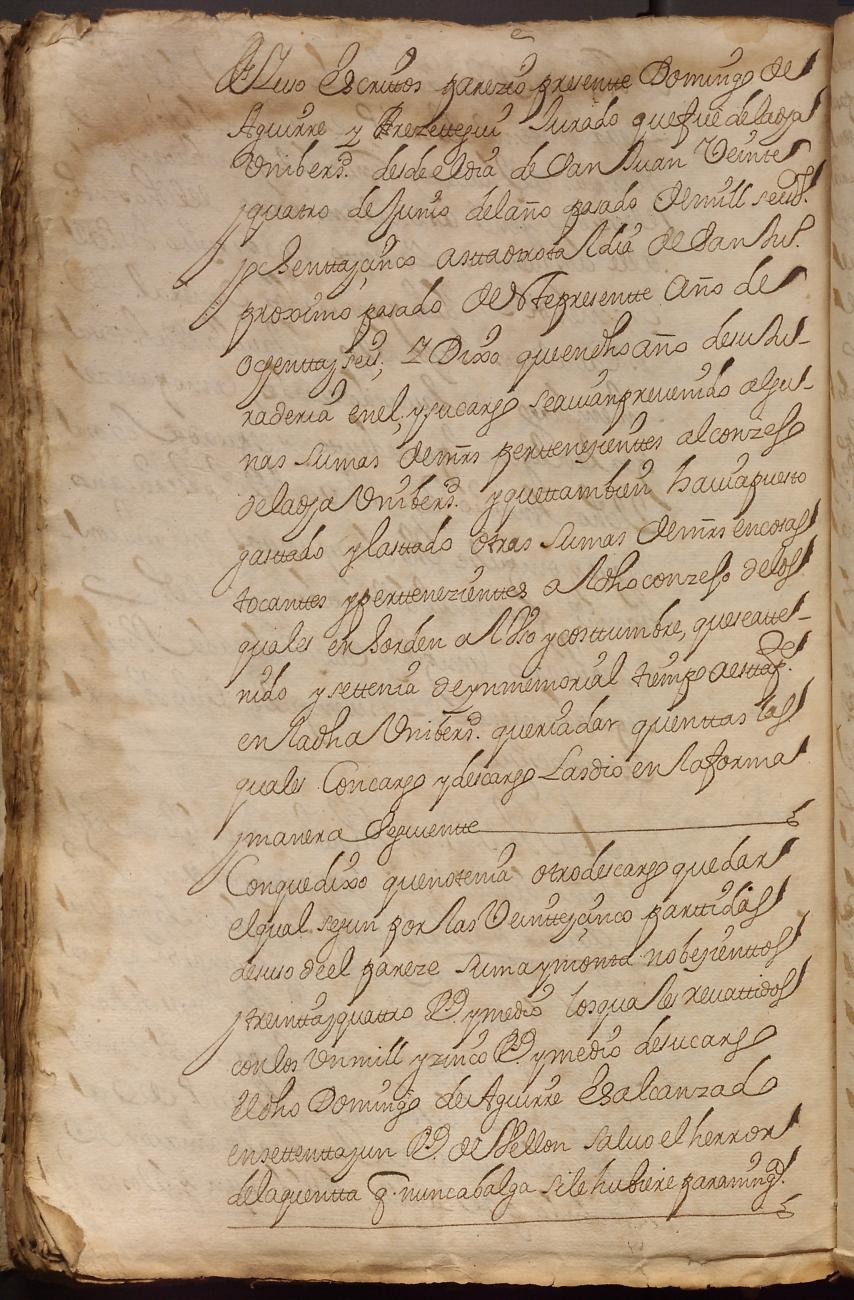 suso escrittos parezio presentte Domingo de
Aguirre y Arezettegui Jurado que fue de la dha
Vnibersd. desde el dia de San Juan Veintte
y quatro de Junio del año pasado de mill seisos.
y ochentta y cinco astta otro tal dia de San Jun.
proximo pasado de este presentte Año de
ochentta y seis, Y Dixo que en dho año de su Ju-
raderia en el, y su cargo se auian prevenido algu-
nas sumas de mrs perttenezienttes al conzejo
de la dha Vnibersd. y que ttambien hauia puesto
gasttado y lasttado otras sumas de mrs en cosas
tocanttes y perttenezienttes al dho conzejo de los
quales en horden al Uso y costtumbre, que se a tte-
nido y se ttenia de ynmemorial tiempo a estta pte.
en la dha Vnibersd. queria dar quenttas las
quales Con cargo y descargo Las dio en la forma
y manera Siguientte
Con que dixo que no tenia otro descargo que dar
el qual segun por las Veintte y cinco parttidas
de suso de el pareze suma y montta nobezienttos
y treintta y quattro Rs. y medio los quales revattidos
con los Vn mill y zinco Rs. y medio de su cargo
El dho Domingo de Aguirre Es alcanzado
en settentta y un Rs. de Vellon salvo el herror
de la quentta q. nunca balga si le hubiere para ningo.